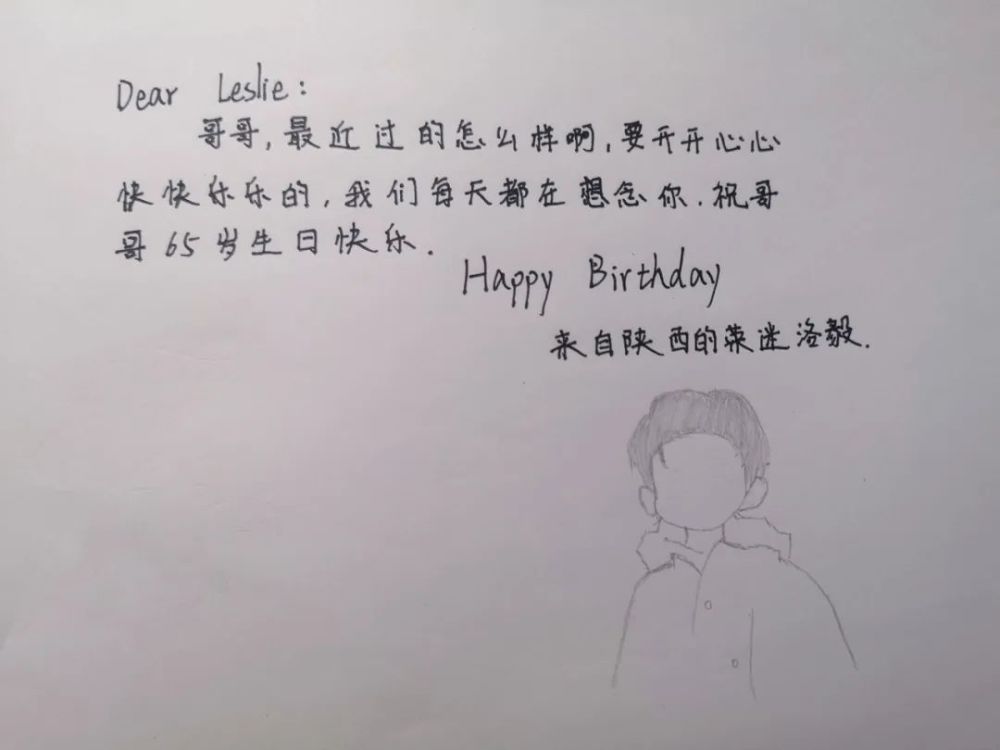 Dear Leslie:
哥哥,最近过的怎么样啊,要开开心心
快快乐乐的,我们每天都在想念你.祝哥
哥65岁生日快乐.
Happy Birthday
来自陕西的荣迷洛毅.